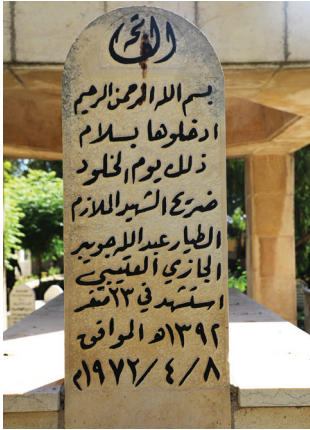 الفاتحة
بسم الله الرحمن الرحيم
ادخلوها بسلام
ذلك يوم الخلود
ضريح الشهيد الملازم
الطيار عبدالله جويبر
الجازي العتيبي
استشهد في ٢٣ صفر
١٣٩٢ه الموافق
٨ / ٤ / ١٩٧٢م